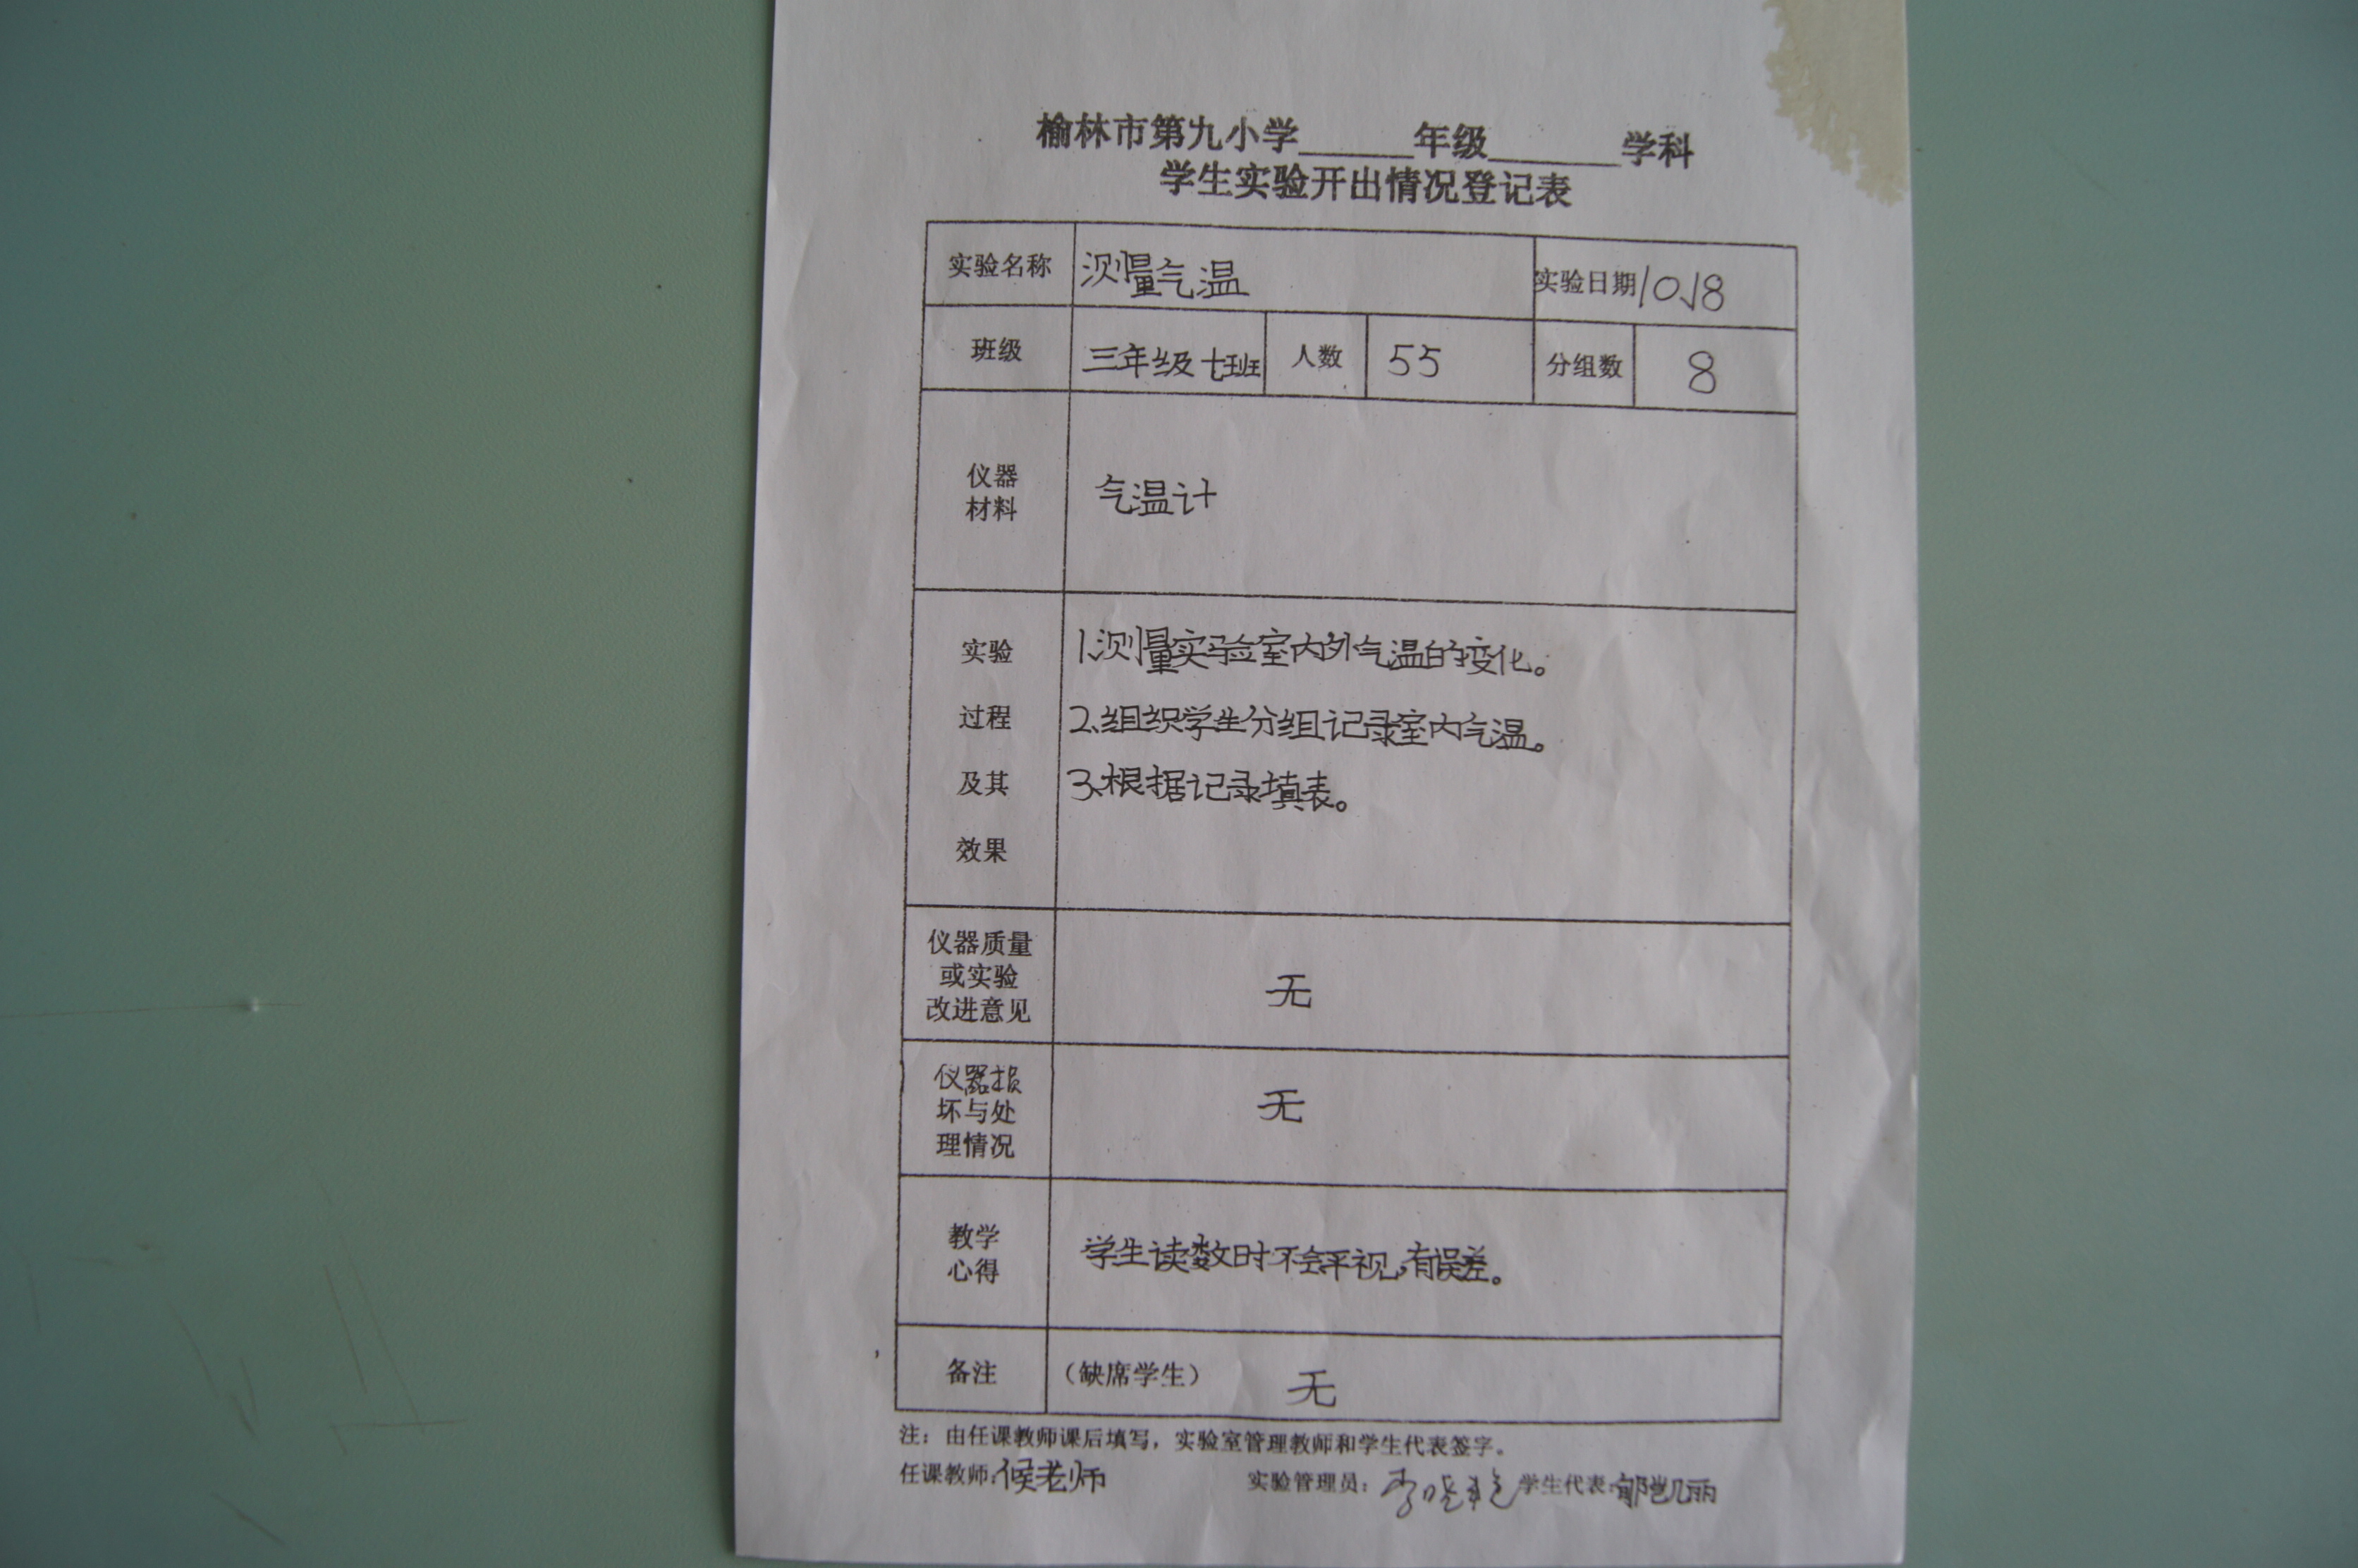 榆林市第九小学______年级______学科
学生实验开出情况登记表
实验名称 测量气温 实验日期 10.18
班级 三年级七班 人数 55 分组数 8
仪器
材料
气温计
实验
过程
及其
效果
1.测量实验室内外气温的变化。
2.组织学生分组记录室内气温。
3.根据记录填表。
仪器质量
或实验
改进意见
无
仪器损
坏与处
理情况
无
教学
心得
学生读数时不会平视,有误差。
备注 (缺席学生) 无
注：由任课教师课后填写，实验室管理教师和学生代表签字。
任课教师:候老师 实验管理员： 学生代表:郇凯丽